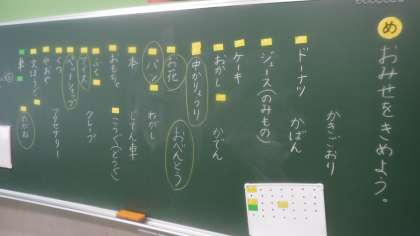 め
おみせをきめよう。
かきごおり
ドーナツ
かばん
ジュース(のみもの)
ケーキ
おかし
かでん
中かりょうり
おべんとう
お花
パン
わかし
本
じてん車
おもちゃ
こうぐ(どうぐ)
ふく
クレープ
アイス
ペットショップ
アクセサリー
くつ
やおや
文ぼうぐ
車